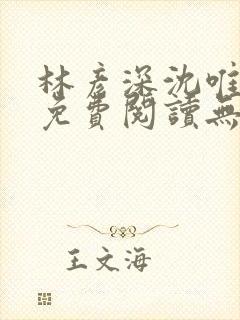 林彦深沈唯
免費閱讀無
王文海